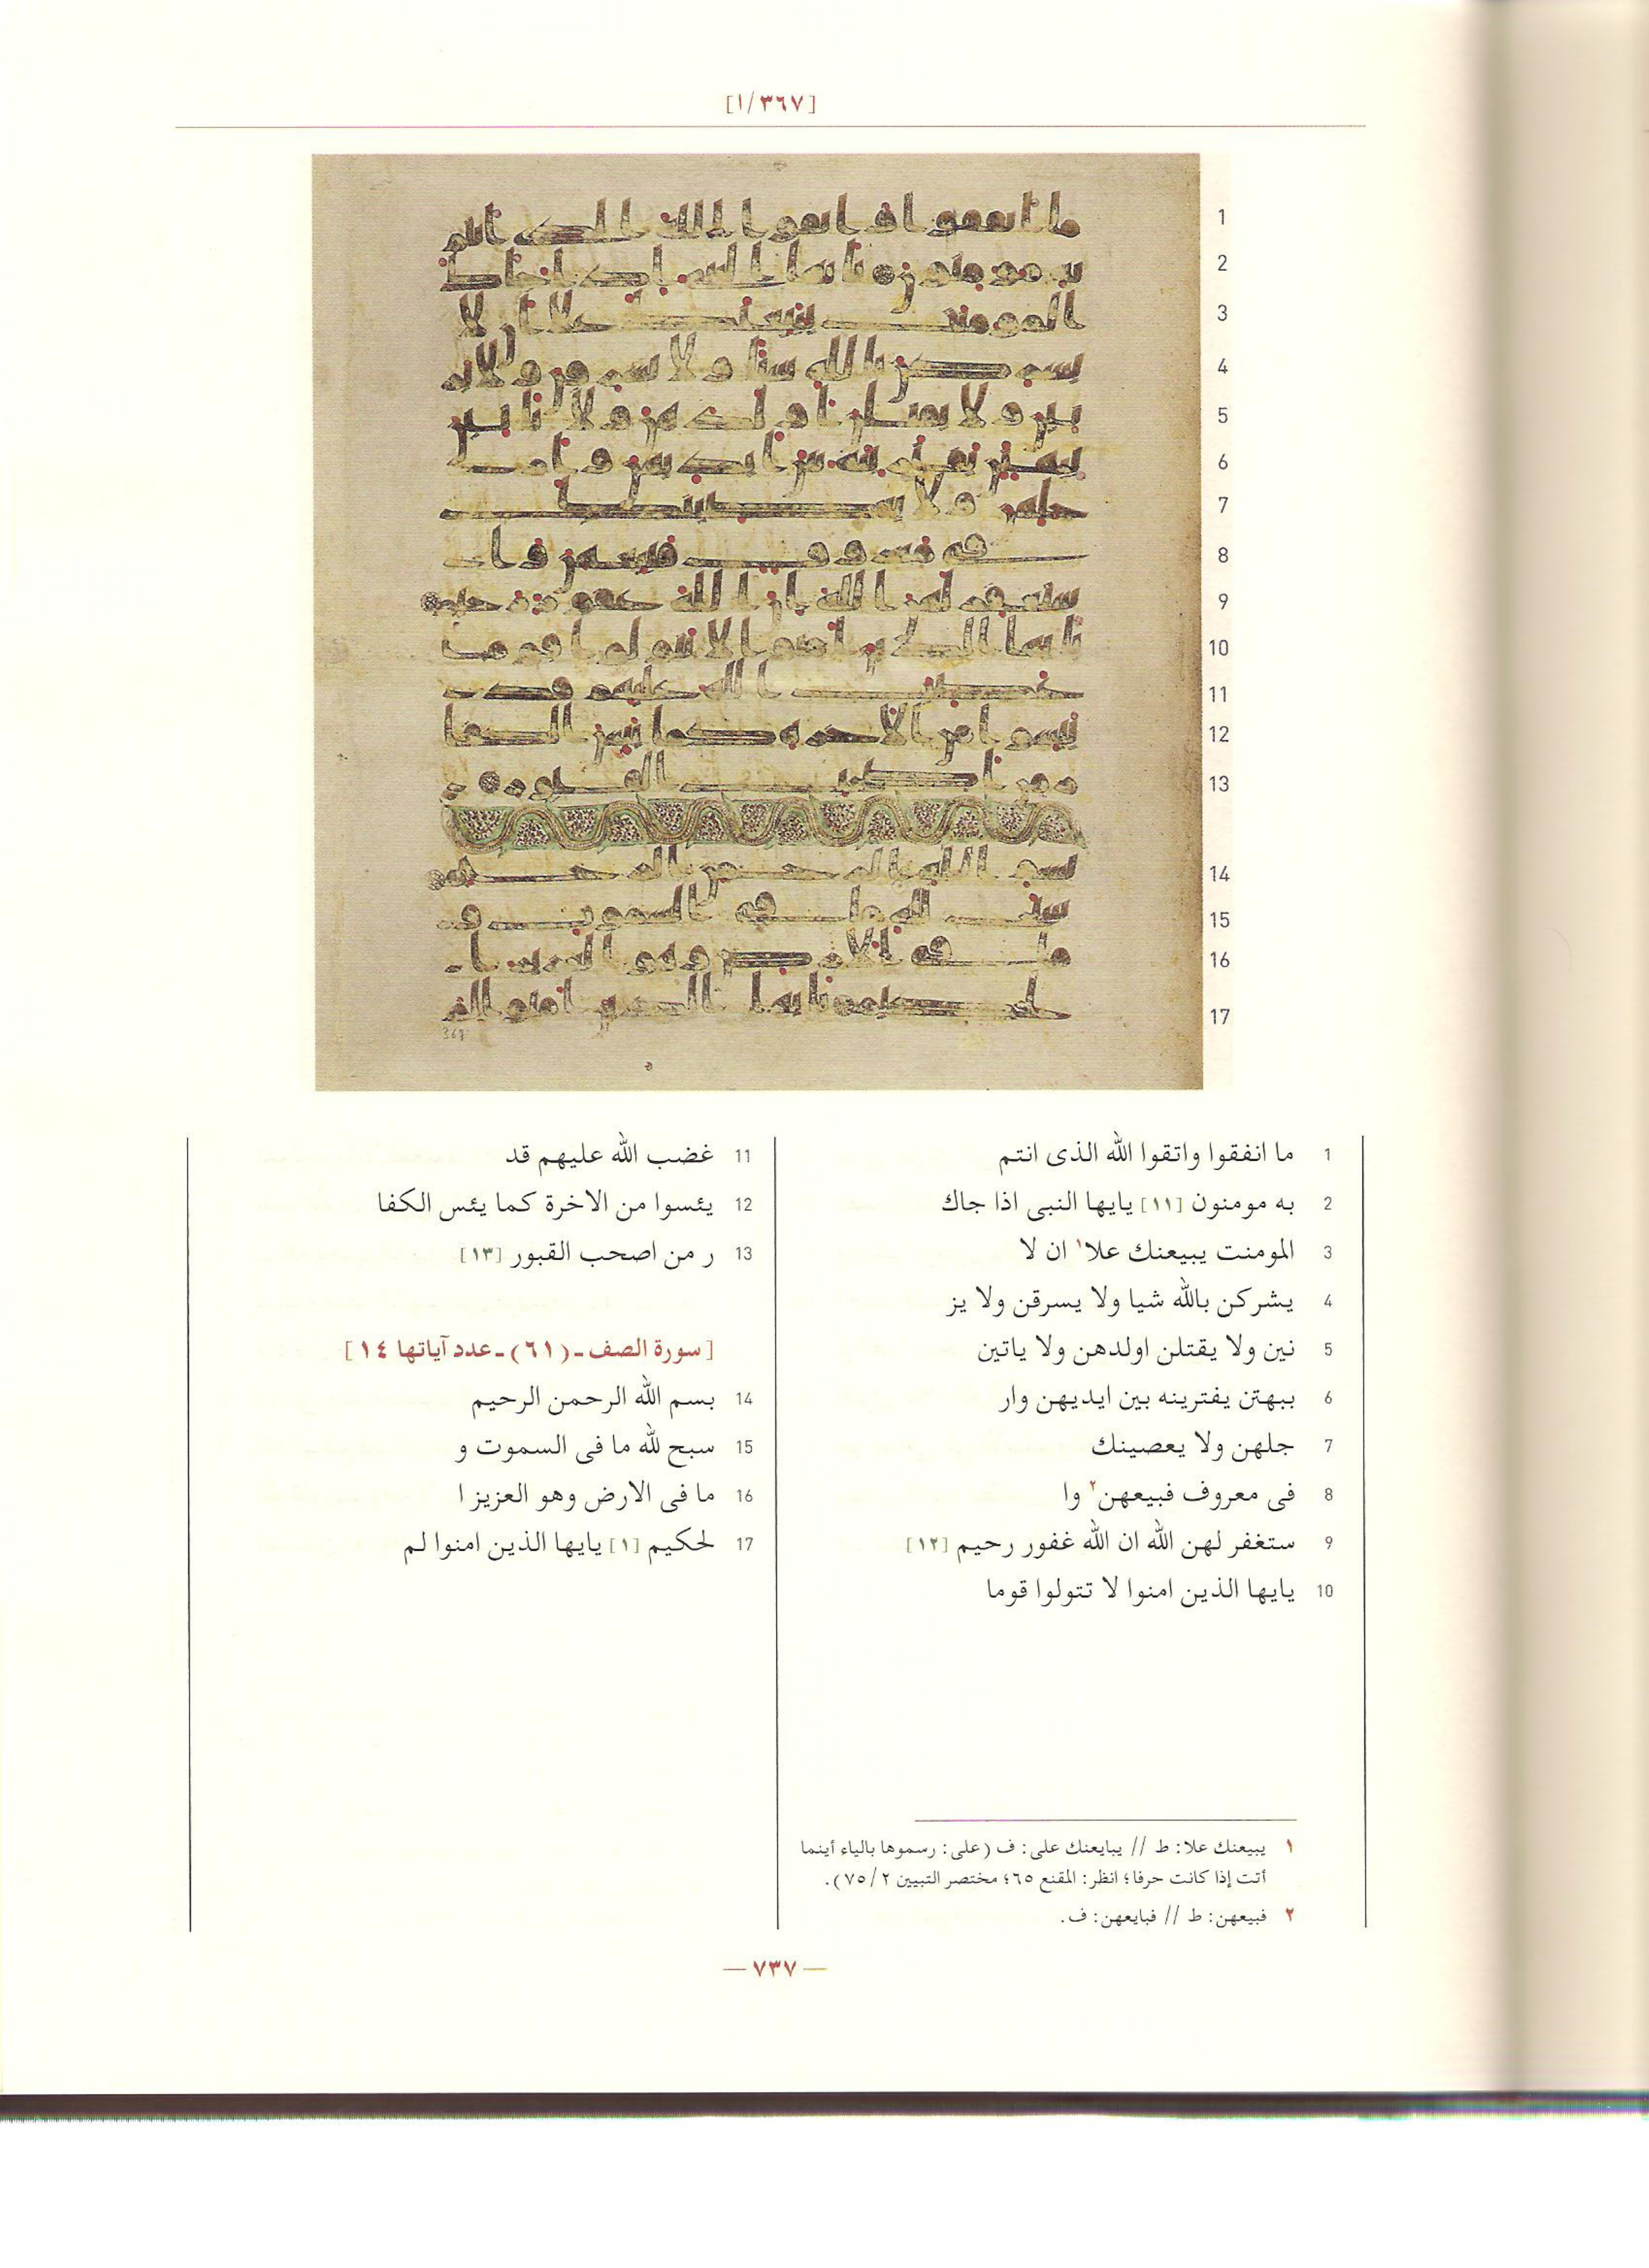 [١/٣٦٧]
1
2
3
4
5
6
7
8
9
10
11
12
13
14
15
16
17
367
1 ما انفقوا واتقوا الله الذى انتم
2 به مومنون [١١] يايها النبى اذا جاك
3 المومنت يبيعنك علا١ ان لا
4 يشركن بالله شيا ولا يسرقن ولا يز
5 نين ولا يقتلن اولدهن ولا ياتين
6 ببهتن يفترينه بين ايديهن وار
7 جلهن ولا يعصينك
8 فى معروف فبيعهن٢ وا
9 ستغفر لهن الله ان الله غفور رحيم [١٢]
10 يايها الذين امنوا لا تتولوا قوما
11 غضب الله عليهم قد
12 يئسوا من الاخرة كما يئس الكفا
13 ر من اصحب القبور [١٣]
[سورة الصف ـ (٦١) ـ عدد آياتها ١٤]
14 بسم الله الرحمن الرحيم
15 سبح لله ما فى السموت و
16 ما فى الارض وهو العزيز ا
17 لحكيم [١] يايها الذين امنوا لم
١ يبيعنك علا: ط // يبايعنك على: ف (على: رسموها بالياء أينما
أتت إذا كانت حرفا؛ انظر: المقنع ٦٥؛ مختصر التبيين ٢/٧٥).
٢ فبيعهن: ط // فبايعهن: ف.
— ٧٣٧ —